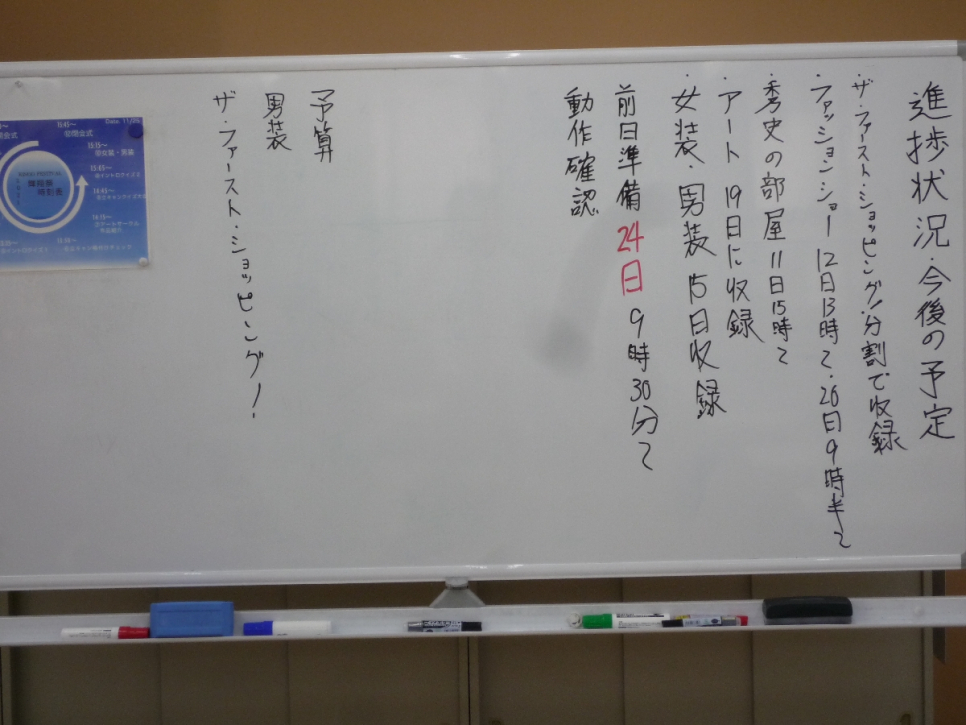 進捗状況・今後の予定
・ザ・ファースト・ショッピング!分割で収録
・ファッションショー 12日13時~・26日9時半~
・秀史の部屋11日15時~
・アート 19日に収録
・女装・男装 15日収録
前日準備 24日 9時30分~
動作確認
予算
男装
ザ・ファースト・ショッピング!